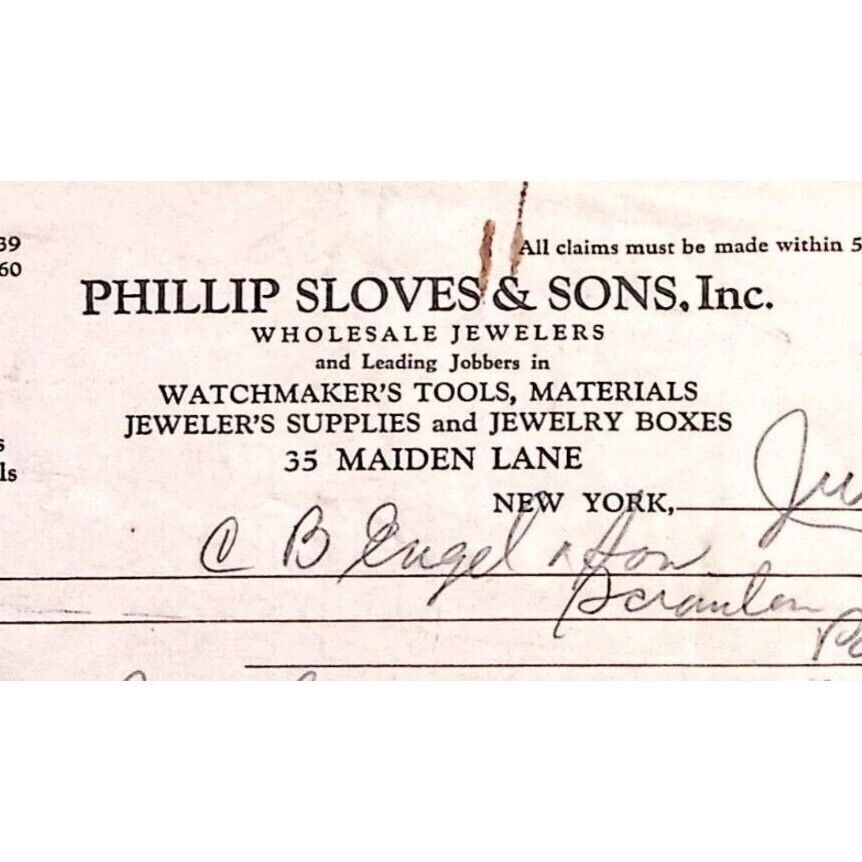 39
60
All claims must be made within 5
PHILLIP SLOVES & SONS, Inc.
WHOLESALE JEWELERS
and Leading Jobbers in
WATCHMAKER'S TOOLS, MATERIALS
JEWELER'S SUPPLIES and JEWELRY BOXES
s
ls
35 MAIDEN LANE
NEW YORK, Ju
C B Engel & Son
Scranton
Pa